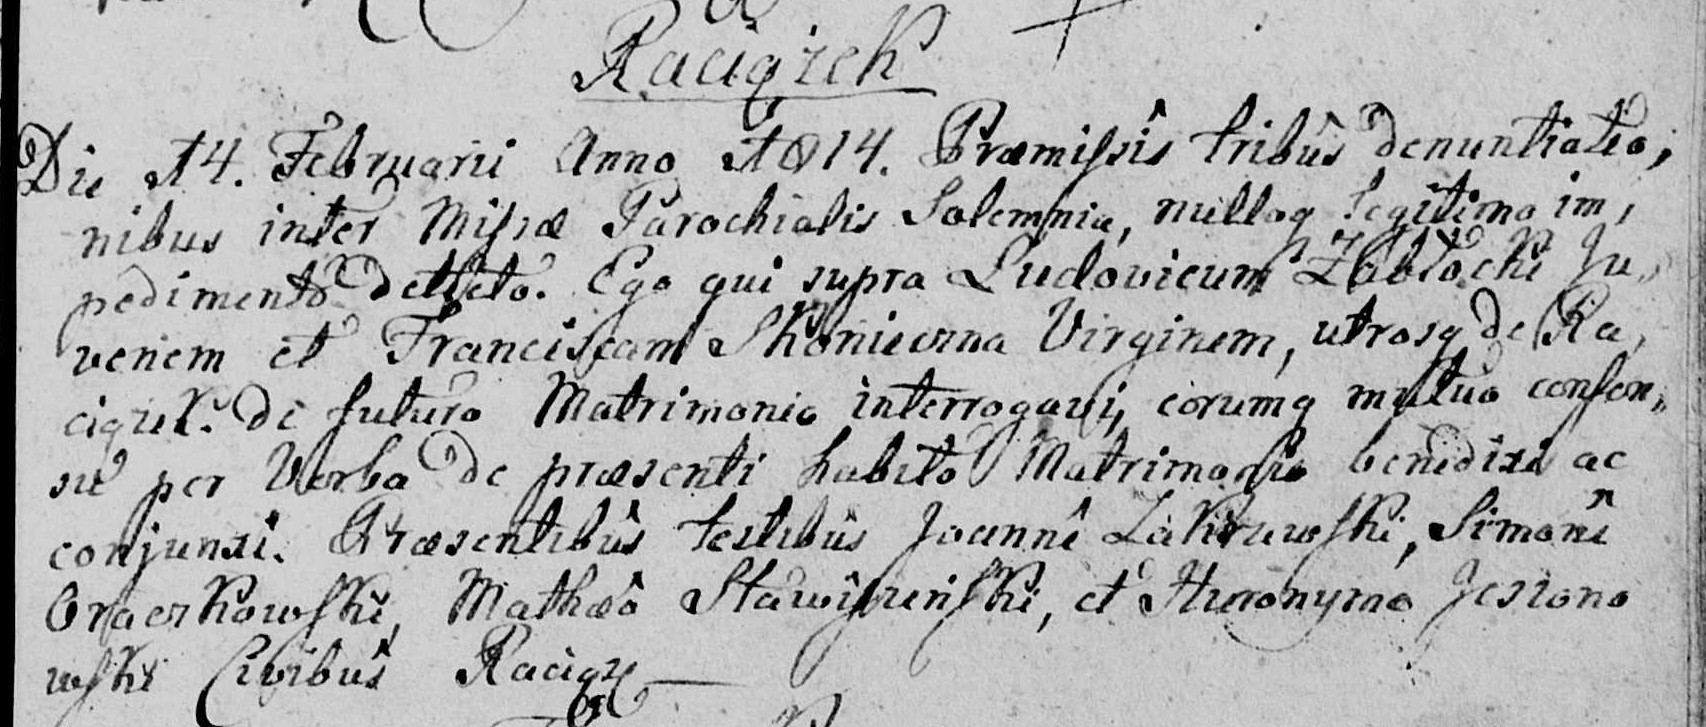 Raciązek
Die 14. Februarii Anno 1814. Præmissis tribus denuntiatio,
nibus inter Missæ Parochialis Solemnia, nulloq legitimo im,
pedimento detecto. Ego qui supra Ludovicum Zabłocki Ju,
venem et Franciscam Skonieczna Virginem, utrosq de Ra,
ciąziek. de futuro Matrimonio interrogavi, eorumq mutuo consen,
su per Verba de præsenti habito Matrimonio benedixi ac
conjunxi. Præsentibus testibus Joanne Zakrzewski, Simone
Graczkowski, Mathæo Stawiszenski, et Hieronymo Jesiono
wski Civibus Raciąz